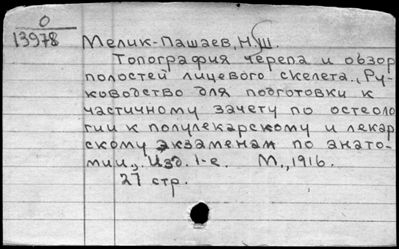 О
13978
Мелик-Пашаев, Н.Ш.
Топография черепа и обзор
полостей лицевого скелета., Ру-
ководство для подготовки к
частичному зачету по остеоло
гии к полулекарскому и лекар
скому экзаменам по анато-
мии,. Изд. 1-е. М., 1916.
27 стр.